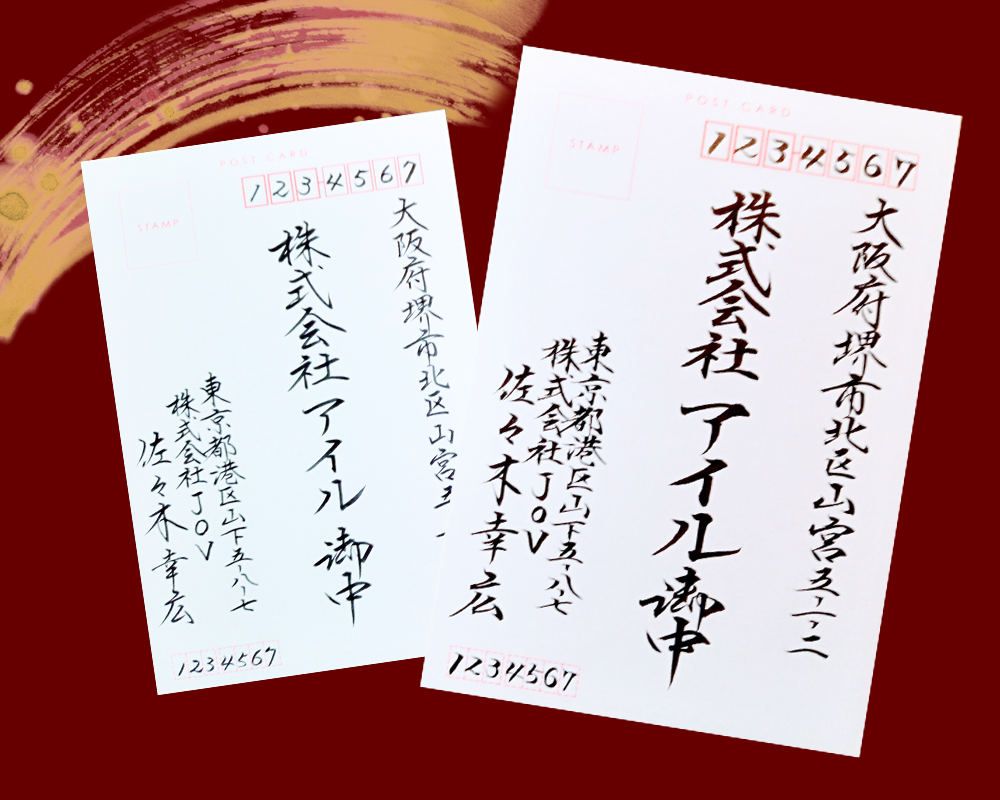 POST CARD
STAMP
1234567
大阪府堺市北区山宮五
株式会社アイル御中
東京都港区山下五-八-七
株式会社JOV
佐々木幸広
1234567
POST CARD
STAMP
123-4567
大阪府堺市北区山宮五-一-二
株式会社アイル御中
東京都港区山下五-八-七
株式会社JOV
佐々木幸広
1234567